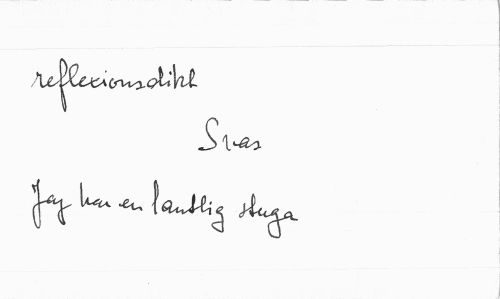 reflexionsdikt
Svas
Jag har en lantlig stuga